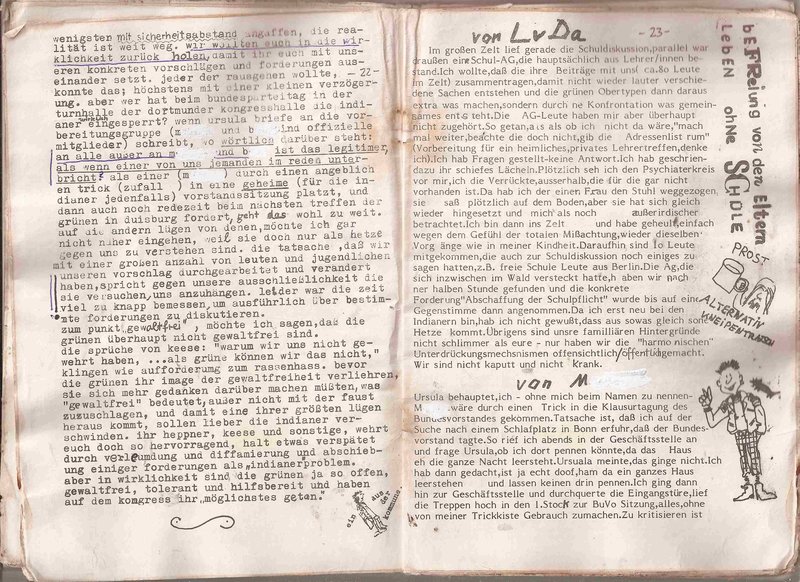 wenigsten mit sicherheitsabstand angaffen, die rea-
lität ist weit weg. wir wollten euch in die wir-
klichkeit zurück holen, damit ihr euch mit uns-
eren konkreten vorschlägen und forderungen aus-
einander setzt. jeder der rausgehen wollte, - 22-
konnte das; höchstens mit einer kleinen verzöger-
ung. aber wer hat beim bundesparteitag in der
turnhalle der dortmunder kongresshalle die indi-
aner eingesperrt? wenn ursula briefe an die vor-
bereitungsgruppe (m und b sind offizielle
mitglieder) schreibt, wo wörtlich darüber steht:
an alle auser an m und b ist das legitimer,
als wenn einer von uns jemanden im reden unter-
bricht? als einer (m ) durch einen angeblich
en trick (zufall ) in eine geheime (für die in-
dianer jedenfalls) vorstandssitzung platzt, und
dann auch noch redezeit beim nächsten treffen der
grünen in duisburg fordert, geht das wohl zu weit.
auf die andern lügen von denen, möchte ich gar
nicht näher eingehen, weil sie doch nur als hetze
gegen uns zu verstehen sind. die tatsache ,daß wir
mit einer großen anzahl von leuten und jugendlichen
unseren vorschlag durchgearbeitet und verändert
haben, spricht gegen unsere ausschließlichkeit die
sie versuchen, uns anzuhängen. leider war die zeit
viel zu knapp bemessen, um ausführlich über bestim-
mte forderungen zu diskutieren.
zum punkt „gewaltfrei", möchte ich sagen, daß die
grünen überhaupt nicht gewaltfrei sind.
die sprüche von keese: "warum wir uns nicht ge-
wehrt haben, ...als grüne können wir das nicht,"
klingen wie aufforderung zum rassenhass. bevor
die grünen ihr image der gewaltfreiheit verliehren,
sie sich mehr gedanken darüber machen müßten, was
"gewaltfrei" bedeutet, außer nicht mit der faust
zuzuschlagen, und damit eine ihrer größten lügen
heraus kommt, sollen lieber die indianer ver-
schwinden. ihr heppner, keese und sonstige, wehrt
euch doch so hervorragend, halt etwas verspätet
durch verleumdung und diffamierung und abschieb-
ung einiger forderungen als „indianerproblem.
aber in wirklichkeit sind die grünen ja so offen,
gewaltfrei, tolerant und hilfsbereit und haben
auf dem kongress ihr „möglichstes getan."
ein aus der kommune
von LvDa - 23 -
Im großen Zelt lief gerade die Schuldiskussion, parallel war
draußen eine Schul-AG, die hauptsächlich aus Lehrer/innen be-
stand. Ich wollte, daß die ihre Beiträge mit uns( ca. 80 Leute
im Zelt) zusammentragen, damit nicht wieder lauter verschie-
dene Sachen entstehen und die grünen Obertypen dann daraus
extra was machen, sondern durch ne Konfrontation was gemein-
names ent&teht. Die AG-Leute haben mir aber überhaupt
nicht zugehört. So getan, als ob ich nicht da wäre, "mach
mal weiter, beachte die doch nicht, gib die Adressenlist rum"
(Vorbereitung für ein heimliches, privates Lehrertreffen, denke
ich). Ich hab Fragen gestellt-keine Antwort. Ich hab geschrien-
dazu ihr schiefes Lächeln. Plötzlich seh ich den Psychiaterkreis
vor mir, ich die Verrückte, ausserhalb, die für die gar nicht
vorhanden ist. Da hab ich der einen Frau den Stuhl weggezogen,
sie saß plötzlich auf dem Boden, aber sie hat sich gleich
wieder hingesetzt und mich als noch außerirdischer
betrachtet. Ich bin dann ins Zelt und habe geheult, einfach
wegen dem Gefühl der totalen Mißachtung, wieder dieselben
Vorg änge wie in meiner Kindheit. Daraufhin sind 10 Leute
mitgekommen, die auch zur Schuldiskussion noch einiges zu
sagen hatten, z.B. freie Schule Leute aus Berlin. Die Ag, die
sich inzwischen im Wald versteckt hatte, haben wir nach
ner halben Stunde gefunden und die konkrete
Forderung "Abschaffung der Schulpflicht" wurde bis auf eine
Gegenstimme dann angenommen. Da ich erst neu bei den
Indianern bin, hab ich nicht gewußt, dass aus sowas gleich so ne
Hetze kommt. Übrigens sind unsre familiären Hintergründe
nicht schlimmer als eure - nur haben wir die "harmonischen"
Unterdrückungsmechsnismen offensichtlich/öffentlich gemacht.
Wir sind nicht kaputt und nicht krank.
von M
Ursula behauptet, ich - ohne mich beim Namen zu nennen-
M wäre durch einen Trick in die Klausurtagung des
Bundesvorstandes gekommen. Tatsache ist, daß ich auf der
Suche nach einem Schlafplatz in Bonn erfuhr, daß der Bundes-
vorstand tagte. So rief ich abends in der Geschäftsstelle an
und frage Ursula, ob ich dort pennen könnte, da das Haus
eh die ganze Nacht leersteht. Ursuala meinte, das ginge nicht. Ich
hab dann gedacht, ist ja echt doof, ham da ein ganzes Haus
leerstehen und lassen keinen drin pennen. Ich ging dann
hin zur Geschäftsstelle und durchquerte die Eingangstüre, lief
die Treppen hoch in den 1.Stock zur BuVo Sitzung, alles, ohne
von meiner Trickkiste Gebrauch zumachen. Zu kritisieren ist
bEFReiung von den Eltern
LebEN ohNe SCHULE
PROST
ALTERNATIV
KNEIPENTRATSCH